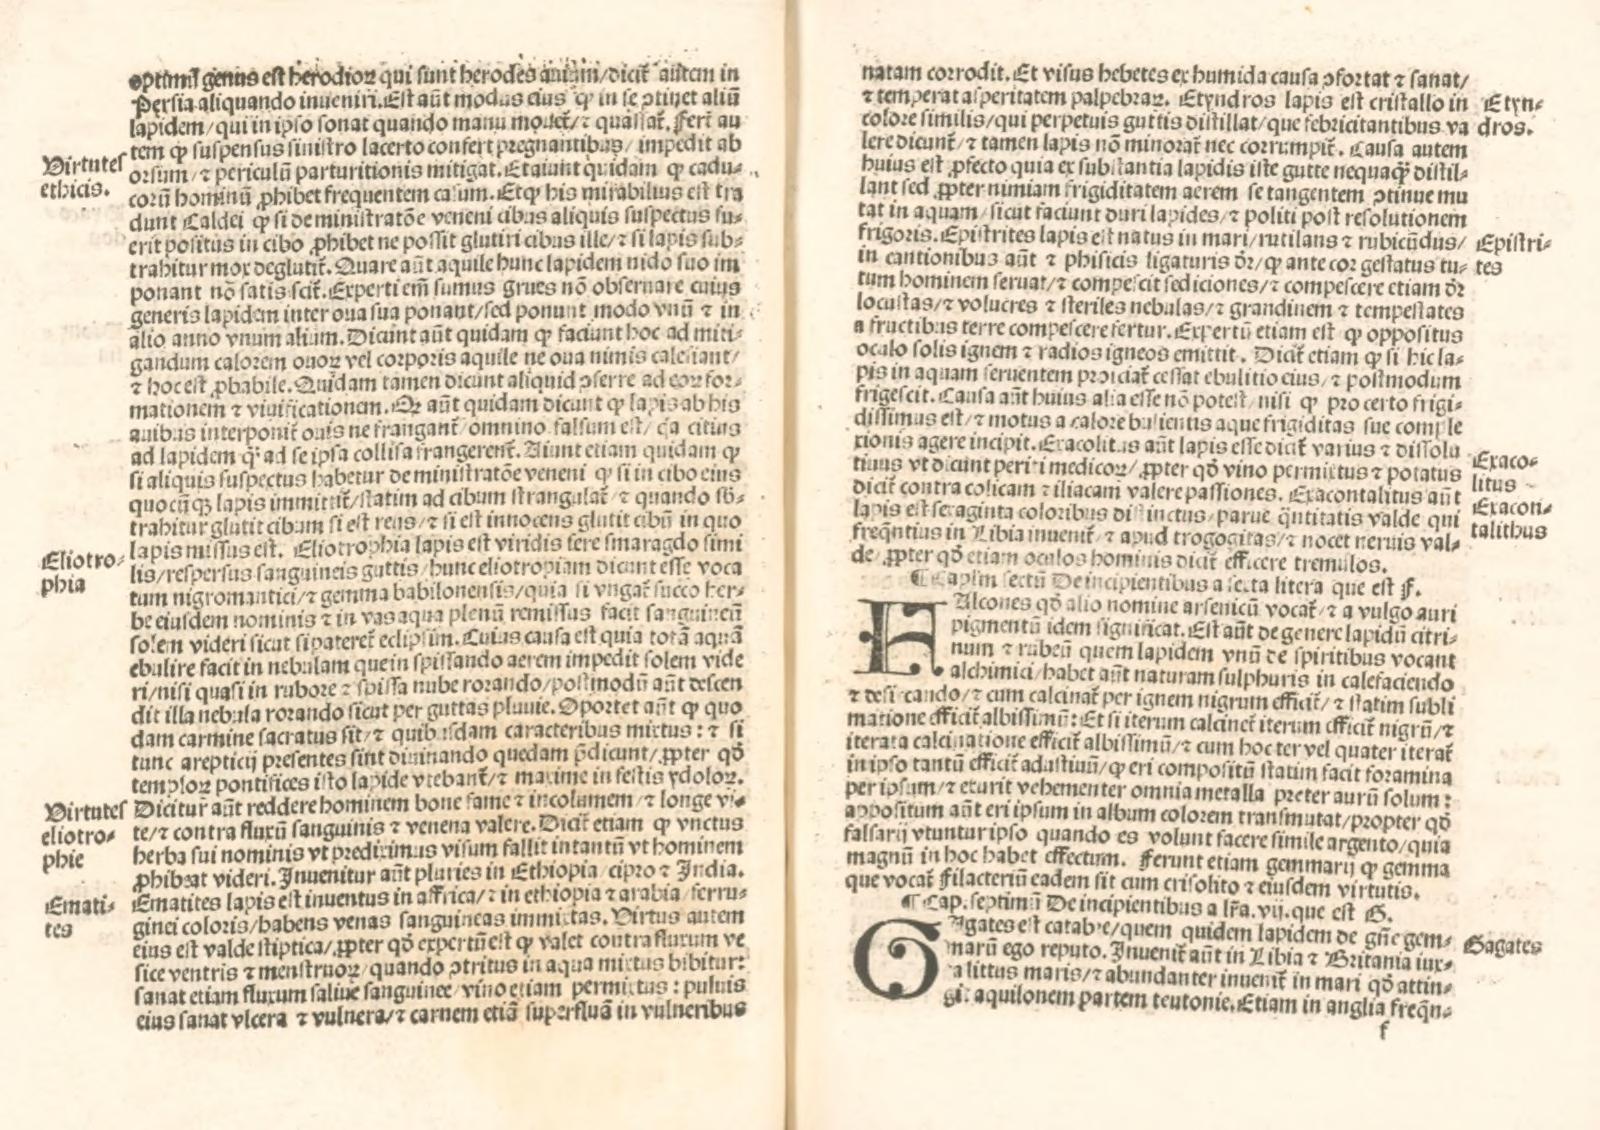 optimū genus est herodioꝝ qui sunt herodes auium/dicit̄ autem in
Persia aliquando inueniri. Est aūt modus eius ꝙ in se ↄtinet aliū
lapidem/qui in ipso sonat quando manu mouet̄/⁊ quassat̄. Fert̄ au
Virtutes
ethicis.
tem ꝙ suspensus sinistro lacerto confert pregnantibus/ impedit ab
orsum/⁊ periculū parturitionis mitigat. Et aiunt quidam ꝙ cadu-
corū hominū ꝓhibet frequentem casum. Etꝙ his mirabilius est tra
dunt Caldei ꝙ si de ministratōe veneni cibus aliquis suspectus fu-
erit positus in cibo ꝓhibet ne possit glutiri cibus ille/⁊ si lapis sub-
trahitur mox deglutit̄. Quare aūt aquile hunc lapidem nido suo im
ponant nō satis scit̄. Experti em̄ sumus grues nō obseruare cuius
generis lapidem inter oua sua ponant/sed ponunt modo vnū ⁊ in
alio anno vnum alium. Dicunt aūt quidam ꝙ faciunt hoc ad miti-
gandum calorem ouoꝝ vel corporis aquile ne oua nimis calefiant/
⁊ hoc est ꝓbabile. Quidam tamen dicunt aliquid ↄferre ad eoꝝ for-
mationem ⁊ viuificationem. Qꝝ aūt quidam dicunt ꝙ lapis ab his
auibus interponit̄ ouis ne frangant̄/omnino falsum est/ qa citius
ad lapidem ꝙ̄ ad se ipsa collisa frangerent̄. Aiunt etiam quidam ꝙ
si aliquis suspectus habetur de ministratōe veneni ꝙ si in cibo eius
quocūqꝫ lapis immittit̄/statim ad cibum strangulat̄/⁊ quando sb̄-
trahitur glutit cibum si est reus/⁊ si est innocens glutit cibū in quo
Eliotro-
phia
lapis missus est. Eliotrophia lapis est viridis fere smaragdo simi
lis/respersus sanguineis guttis/hunc eliotropiam dicunt esse voca
tum nigromantici/⁊ gemma babilonensis/quia si vngat̄ succo her-
be eiusdem nominis ⁊ in vas aqua plenū remissus facit sanguineū
solem videri sicut si pateret̄ eclipsim. Cuius causa est quia totā aquā
ebulire facit in nebulam que inspissando aerem impedit solem vide
ri/nisi quasi in rubore ⁊ spissa nube rorando/postmodū aūt descen
dit illa nebula rorando sicut per guttas pluuie. Oportet aūt ꝙ quo
dam carmine sacratus sit/⁊ quibusdam caracteribus mixtus: ⁊ si
tunc arepticij presentes sint diuinando quedam p̄dicunt/ꝓpter qđ
temploꝝ pontifices isto lapide vtebant̄/⁊ maxime in festis ydoloꝝ.
Virtutes
eliotro-
phie
Dicitur̄ aūt reddere hominem bone fame ⁊ incolumem/⁊ longe vi-
te/⁊ contra fluxū sanguinis ⁊ venena valere. Dicit̄ etiam ꝙ vnctus
herba sui nominis vt prediximus visum fallit intantū vt hominem
ꝓhibeat videri. Inuenitur aūt pluries in Ethiopia/cipro ⁊ India.
Emati-
tes
Ematites lapis est inuentus in affrica/⁊ in ethiopia ⁊ arabia/ferru-
ginei coloris/habens venas sanguineas immixtas. Virtus autem
eius est valde stiptica/ꝓpter qđ expertū est ꝙ valet contra fluxum ve
sice ventris ⁊ menstruoꝝ/quando ↄtritus in aqua mixtus bibitur:
sanat etiam fluxum saliue sanguinee/vino etiam permixtus: puluis
eius sanat vlcera ⁊ vulnera/⁊ carnem etiā superfluā in vulneribus
natam corrodit. Et visus hebetes ex humida causa ↄfortat ⁊ sanat/
⁊ temperat asperitatem palpebraꝝ. Etyndros lapis est cristallo in
Etyn-
dros.
colore similis/qui perpetuis guttis distillat/que febricitantibus va
lere dicunt̄/⁊ tamen lapis nō minorat̄ nec corrumpit̄. Causa autem
huius est ꝓfecto quia ex substantia lapidis iste gutte nequaꝙ̄ distil-
lant sed ꝓpter nimiam frigiditatem aerem se tangentem ↄtinue mu
tat in aquam/sicut faciunt duri lapides/⁊ politi post resolutionem
frigoris. Epistrites lapis est natus in mari/rutilans ⁊ rubicūdus/
Epistri-
tes
in cantionibus aūt ⁊ phisicis ligaturis dr̄/ꝙ ante cor gestatus tu-
tum hominem seruat/⁊ compescit sediciones/⁊ compescere etiam dr̄
locustas/⁊ volucres ⁊ steriles nebulas/⁊ grandinem ⁊ tempestates
a fructibus terre compescere fertur. Expertū etiam est ꝙ oppositus
oculo solis ignem ⁊ radios igneos emittit. Dicit̄ etiam ꝙ si hic la-
pis in aquam feruentem proiciat̄ cessat ebulitio eius/⁊ postmodum
frigescit. Causa aūt huius alia esse nō potest/nisi ꝙ pro certo frigi-
dissimus est/⁊ motus a calore bulientis aque frigiditas sue comple
xionis agere incipit. Exacolitus aūt lapis esse dicit̄ varius ⁊ dissolu
Exaco-
litus
tiuus vt dicunt periti medicoꝝ/ꝓpter qđ vino permixtus ⁊ potatus
dicit̄ contra colicam ⁊ iliacam valere passiones. Exacontalitus aūt
Exacon-
talithus
lapis est sexaginta coloribus distinctus/parue q̄ntitatis valde qui
freq̄ntius in Libia inuenit̄/⁊ apud trogogitas/⁊ nocet neruis val-
de/ꝓpter qđ etiam oculos hominis dicit̄ efficere tremulos.
¶ Caplm̄ sextū De incipientibus a sexta litera que est F.
FAlcones qđ alio nomine arsenicū vocat̄/⁊ a vulgo auri
pigmentū idem significat. Est aūt de genere lapidū citri-
num ⁊ rubeū quem lapidem vnū de spiritibus vocant
alchimici/habet aūt naturam sulphuris in calefaciendo
⁊ desiccando/⁊ cum calcinat̄ per ignem nigrum efficit̄/⁊ statim subli
matione efficit̄ albissimū: Et si iterum calcinet̄ iterum efficit̄ nigrū/⁊
iterata calcinatione efficit̄ albissimū/⁊ cum hoc ter vel quater iterat̄
in ipso tantū efficit̄ adustiuū/ꝙ eri compositū statim facit foramina
per ipsum/⁊ exurit vehementer omnia metalla preter aurū solum:
appositum aūt eri ipsum in album colorem transmutat/propter qđ
falsarij vtuntur ipso quando es volunt facere simile argento/quia
magnū in hoc habet effectum. Ferunt etiam gemmarij ꝙ gemma
que vocat̄ Filacterium eadem sit cum crisolito ⁊ eiusdem virtutis.
¶ Cap. septimū De incipientibus a lr̄a. vij. que est G.
GAgates est catabre/quem quidem lapidem de gn̄e gem-
Gagates
marū ego reputo. Inuenit̄ aūt in Libia ⁊ Britania iux-
ta littus maris/⁊ abundanter inuenit̄ in mari qđ attin-
git aquilonem partem teutonie. Etiam in anglia freq̄n-
f